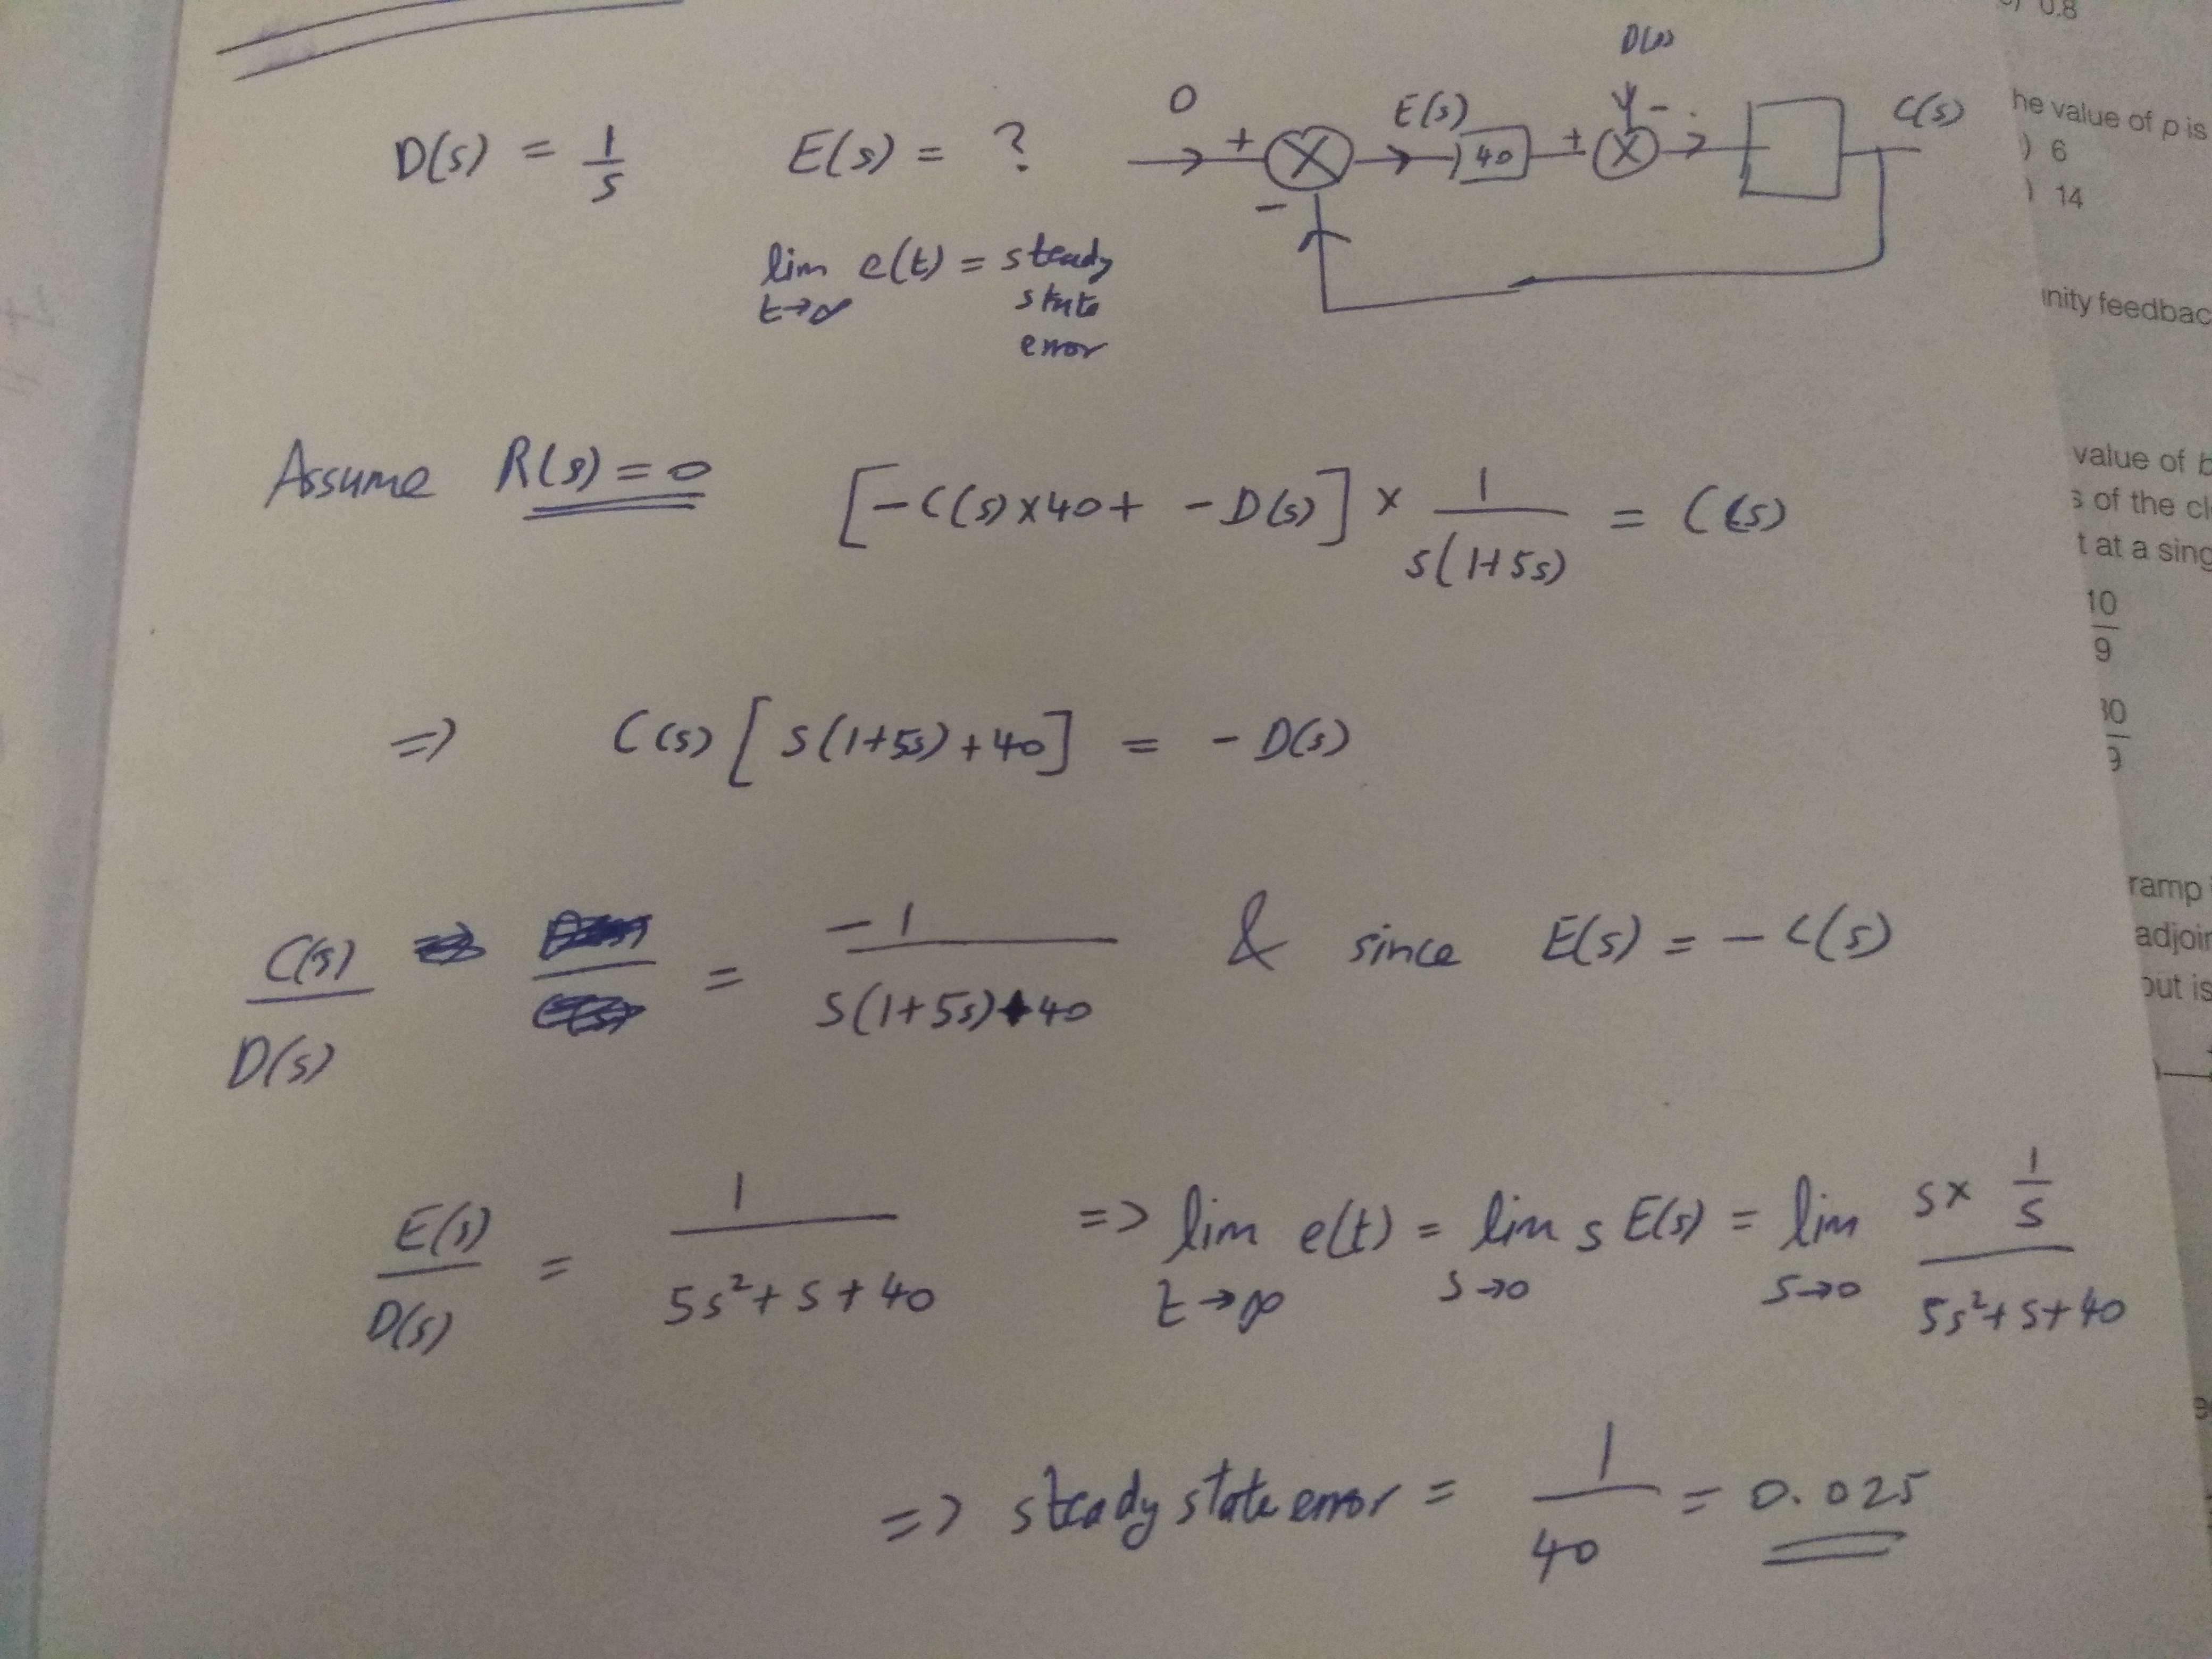 D(s) = 1/s E(s) = ?
lim t→∞ e(t) = steady state error
0 + − E(s) 40 + D(s) − C(s)
Assume R(s) = 0 [−C(s)×40 + −D(s)] × 1/s(1+5s) = C(s)
=> C(s) [s(1+5s)+40] = −D(s)
C(s)/D(s) = −1/s(1+5s)+40 & since E(s) = −C(s)
E(s)/D(s) = 1/5s²+s+40 => lim t→∞ e(t) = lim s→0 s E(s) = lim s→0 s× 1/s / 5s²+s+40
=> steady state error = 1/40 = 0.025
0.8
he value of p is
) 6
) 14
nity feedbac
value of b
s of the cl
t at a sing
10/9
ramp
adjoin
out is